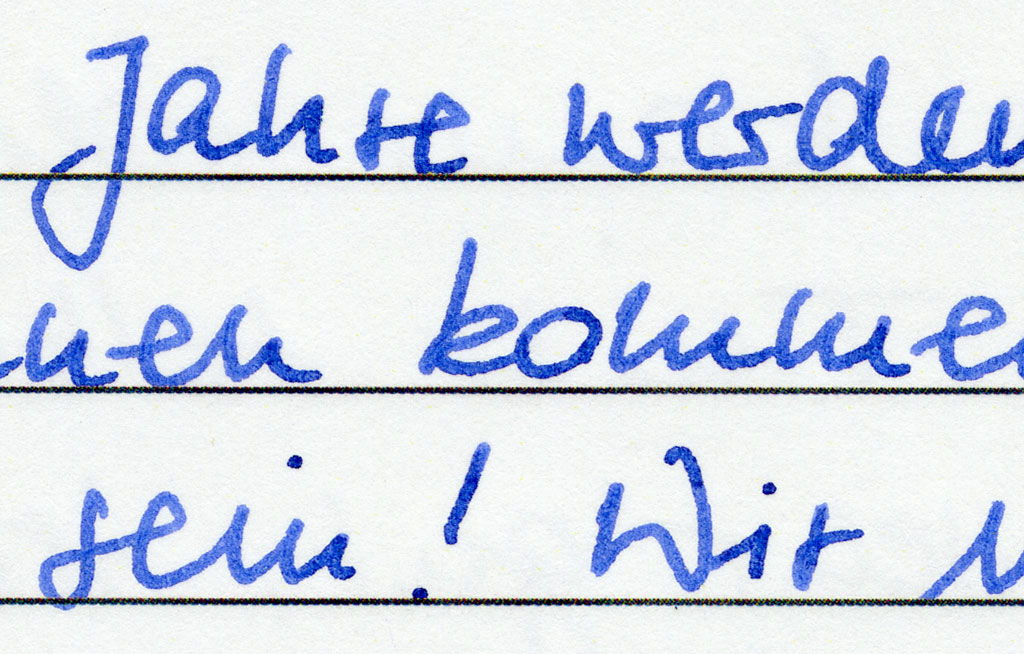 Jahre werden
nen kommen
sein! Wir